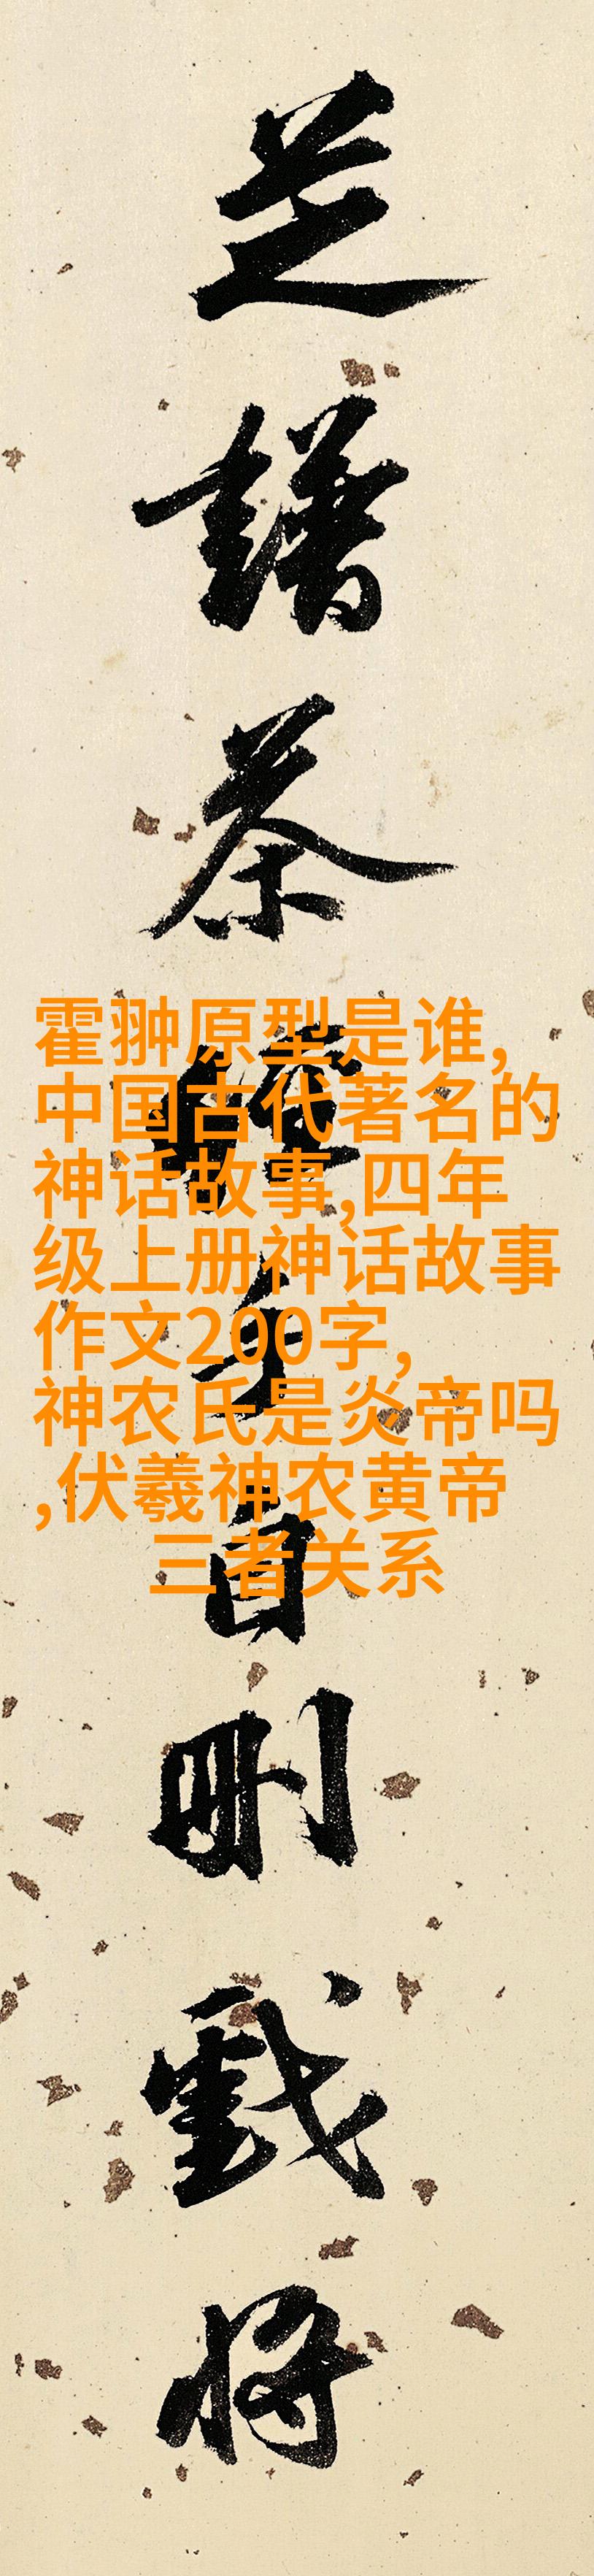 芝譜茶手自刪戲將
霍翀原型是谁,
中国古代著名的
神话故事,四年
级上册神话故事
作文200字,
神农氏是炎帝吗
,伏羲神农黄帝
三者关系